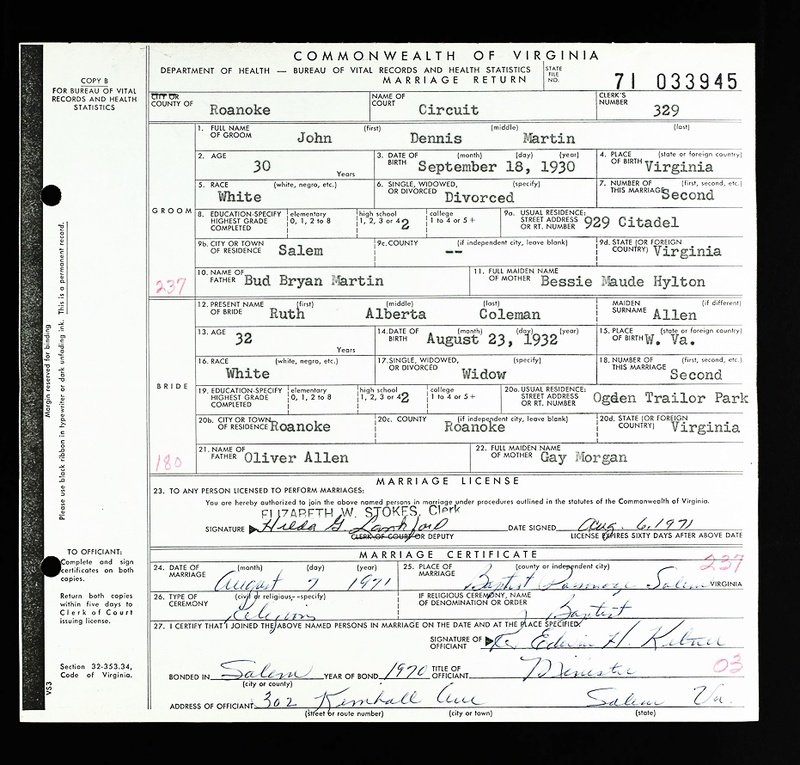 COMMONWEALTH OF VIRGINIA
DEPARTMENT OF HEALTH — BUREAU OF VITAL RECORDS AND HEALTH STATISTICS
MARRIAGE RETURN
STATE FILE NO. 71 033945
COPY B
FOR BUREAU OF VITAL RECORDS AND HEALTH STATISTICS
CITY OR COUNTY OF Roanoke NAME OF COURT Circuit CLERK'S NUMBER 329
GROOM
1. FULL NAME OF GROOM (first) (middle) (last) John Dennis Martin
2. AGE 30 Years 3. DATE OF BIRTH (month) (day) (year) September 18, 1930 4. PLACE OF BIRTH (state or foreign country) Virginia
5. RACE (white, negro, etc.) White 6. SINGLE, WIDOWED, OR DIVORCED (specify) Divorced 7. NUMBER OF THIS MARRIAGE (first, second, etc.) Second
8. EDUCATION-SPECIFY HIGHEST GRADE COMPLETED elementary 0, 1, 2 to 8 high school 1, 2, 3 or 4 2 college 1 to 4 or 5+ 9a. USUAL RESIDENCE: STREET ADDRESS OR RT. NUMBER 929 Citadel
9b. CITY OR TOWN OF RESIDENCE Salem 9c. COUNTY (if independent city, leave blank) -- 9d. STATE (OR FOREIGN COUNTRY) Virginia
237
10. NAME OF FATHER Bud Bryan Martin 11. FULL MAIDEN NAME OF MOTHER Bessie Maude Hylton
BRIDE
12. PRESENT NAME OF BRIDE (first) (middle) (last) Ruth Alberta Coleman MAIDEN SURNAME (if different) Allen
13. AGE 32 Years 14. DATE OF BIRTH (month) (day) (year) August 23, 1932 15. PLACE OF BIRTH (state or foreign country) W. Va.
16. RACE (white, negro, etc.) White 17. SINGLE, WIDOWED, OR DIVORCED (specify) Widow 18. NUMBER OF THIS MARRIAGE (first, second, etc.) Second
19. EDUCATION-SPECIFY HIGHEST GRADE COMPLETED elementary 0, 1, 2 to 8 high school 1, 2, 3 or 4 2 college 1 to 4 or 5+ 20a. USUAL RESIDENCE: STREET ADDRESS OR RT. NUMBER Ogden Trailor Park
20b. CITY OR TOWN OF RESIDENCE Roanoke 20c. COUNTY (if independent city, leave blank) Roanoke 20d. STATE (OR FOREIGN COUNTRY) Virginia
180
21. NAME OF FATHER Oliver Allen 22. FULL MAIDEN NAME OF MOTHER Gay Morgan
MARRIAGE LICENSE
23. TO ANY PERSON LICENSED TO PERFORM MARRIAGES:
You are hereby authorized to join the above named persons in marriage under procedures outlined in the statutes of the Commonwealth of Virginia.
ELIZABETH W. STOKES, Clerk
SIGNATURE Hilda G. Lankford DATE SIGNED Aug. 6, 1971
CLERK OF COURT OR DEPUTY LICENSE EXPIRES SIXTY DAYS AFTER ABOVE DATE
MARRIAGE CERTIFICATE
237
24. DATE OF MARRIAGE (month) (day) (year) August 7 1971 25. PLACE OF MARRIAGE (county or independent city) Baptist Parsonage Salem VIRGINIA
26. TYPE OF CEREMONY (civil or religious—specify) Religious IF RELIGIOUS CEREMONY, NAME OF DENOMINATION OR ORDER Baptist
27. I CERTIFY THAT I JOINED THE ABOVE NAMED PERSONS IN MARRIAGE ON THE DATE AND AT THE PLACE SPECIFIED.
SIGNATURE OF OFFICIAL Edwin H.
BONDED IN Salem (city or county) YEAR OF BOND 1970 TITLE OF OFFICIAL Minister 03
ADDRESS OF OFFICIAL 302 Kimball Ave Salem Va.
(street or route number) (city or town) (state)
Margin reserved for binding
Please use black ribbon in typewriter or dark unfading ink. This is a permanent record.
TO OFFICIAL:
Complete and sign certificates on both copies.
Return both copies within five days to Clerk of Court issuing license.
Section 32-353.34, Code of Virginia.
VS3